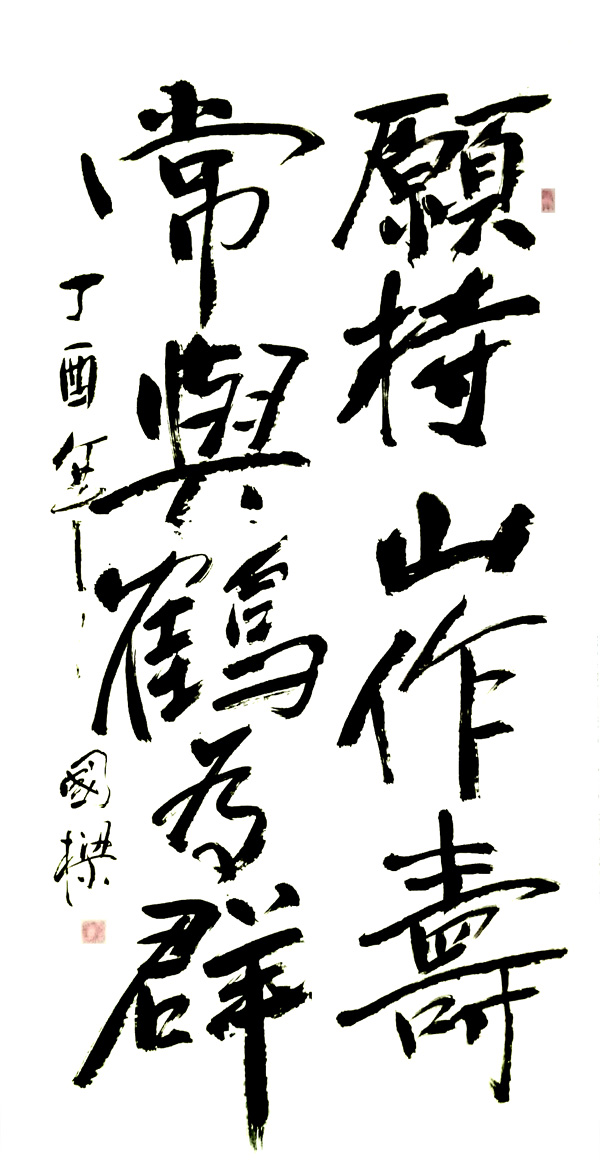 願持山作壽
常與鶴為群
丁酉年 國樑